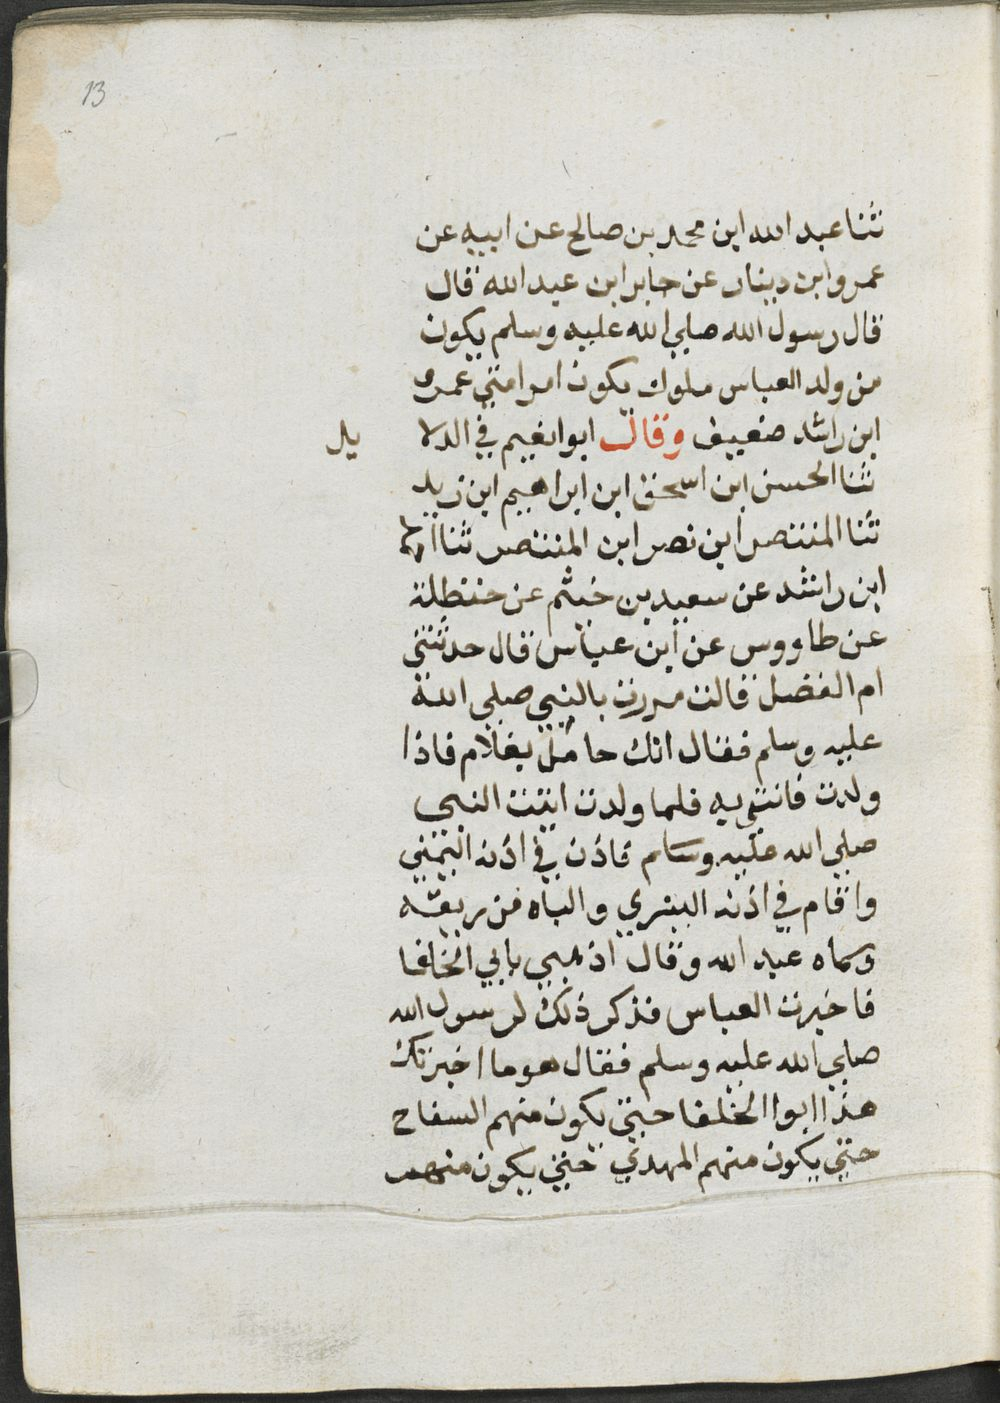 13
ثنا عبد الله ابن محمد بن صالح عن ابيه عن
عمرو ابن دينار عن جابر ابن عبد الله قال
قال رسول الله صلي الله عليه وسلم يكون
من ولد العباس ملوك يكون امر امتي عمر
ابن راشد ضعيف وقال ابوا نعيم في الدلا يل
ثنا الحسن ابن اسحق ابن ابراهيم ابن زيد
ثنا المنتصر ابن نصر ابن المنتصر ثنا
ابن راشد عن سعيد بن خثم عن حنظلة
عن طاووس عن ابن عباس قال حدثتني
ام الفضل قالت مررت بالنبي صلي الله
عليه وسلم فقال انك حامل بغلام فاذا
ولدت فاتني به فلما ولدت اتيت النبي
صلي الله عليه وسلم فاذن في اذنه اليمني
واقام في اذنه اليسري والباه من ريقه
وسماه عبد الله وقال اذهبي بابي الخلفا
فاخبرت العباس فذكر ذلك لرسول الله
صلي الله عليه وسلم فقال هو ما اخبرتك
هذا ابوا الخلفا حتي يكون منهم السفاح
حتي يكون منهم المهدي حتي يكون منهم